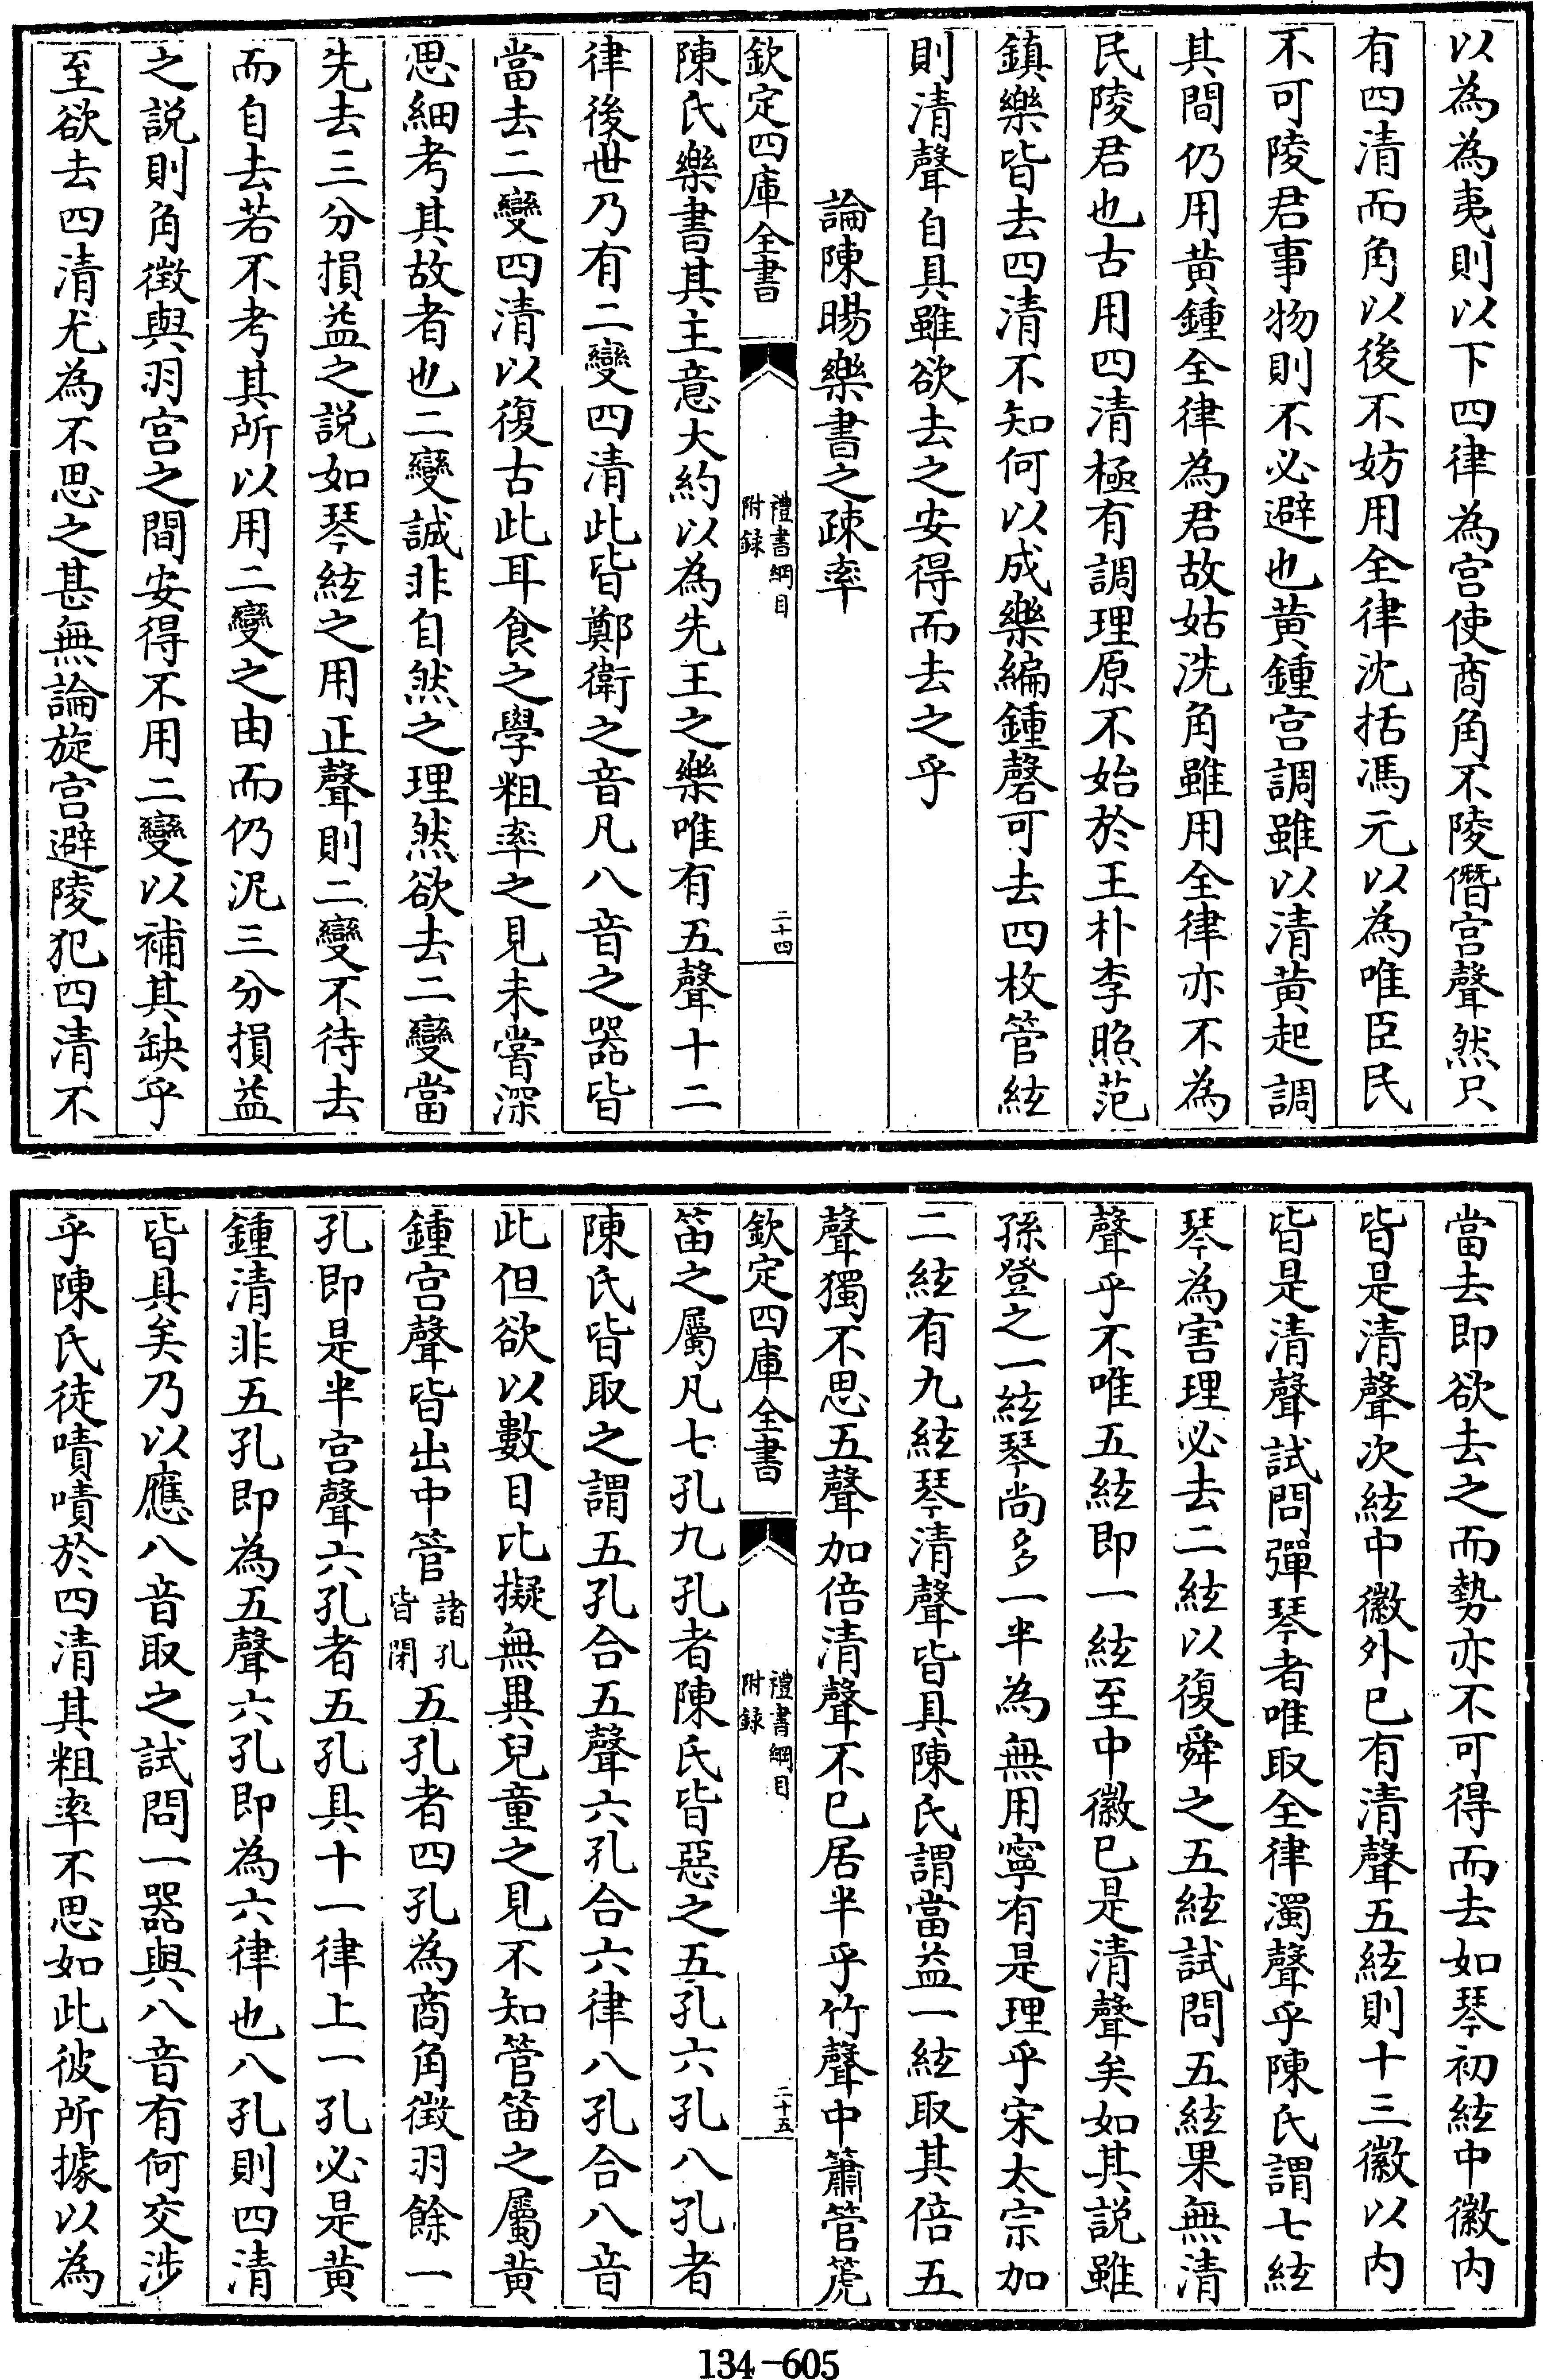 以為為夷則以下四律為宫使商角不陵僭宫聲然只
有四清而角以後不妨用全律沈括馮元以為唯臣民
不可陵君事物則不必避也黄鍾宫調雖以清黄起調
其間仍用黄鍾全律為君故姑洗角雖用全律亦不為
民陵君也古用四清極有調理原不始於王朴李照范
鎮樂皆去四清不知何以成樂編鍾磬可去四枚管絃
則清聲自具雖欲去之安得而去之乎
論陳暘樂書之疎率
欽定四庫全書
禮書綱目
附録
二十四
陳氏樂書其主意大約以為先王之樂唯有五聲十二
律後世乃有二變四清此皆鄭衛之音凡八音之器皆
當去二變四清以復古此耳食之學粗率之見未嘗深
思細考其故者也二變誠非自然之理然欲去二變當
先去三分損益之説如琴絃之用正聲則二變不待去
而自去若不考其所以用二變之由而仍泥三分損益
之説則角徵與羽宫之間安得不用二變以補其缺乎
至欲去四清尤為不思之甚無論旋宫避陵犯四清不
當去即欲去之而勢亦不可得而去如琴初絃中徽内
皆是清聲次絃中徽外已有清聲五絃則十三徽以内
皆是清聲試問彈琴者唯取全律濁聲乎陳氏謂七絃
琴為害理必去二絃以復舜之五絃試問五絃果無清
聲乎不唯五絃即一絃至中徽已是清聲矣如其説雖
孫登之一絃琴尚多一半為無用寧有是理乎宋太宗加
二絃有九絃琴清聲皆具陳氏謂當益一絃取其倍五
聲獨不思五聲加倍清聲不已居半乎竹聲中簫管箎
欽定四庫全書
禮書綱目
附録
二十五
笛之屬凡七孔九孔者陳氏皆惡之五孔六孔八孔者
陳氏皆取之謂五孔合五聲六孔合六律八孔合八音
此但欲以數目比擬無異兒童之見不知管笛之屬黄
鍾宫聲皆出中管諸孔皆閉五孔者四孔為商角徵羽餘一
孔即是半宫聲六孔者五孔具十一律上一孔必是黄
鍾清非五孔即為五聲六孔即為六律也八孔則四清
皆具矣乃以應八音取之試問一器與八音有何交涉
乎陳氏徒嘖嘖於四清其粗率不思如此彼所據以為
134-605